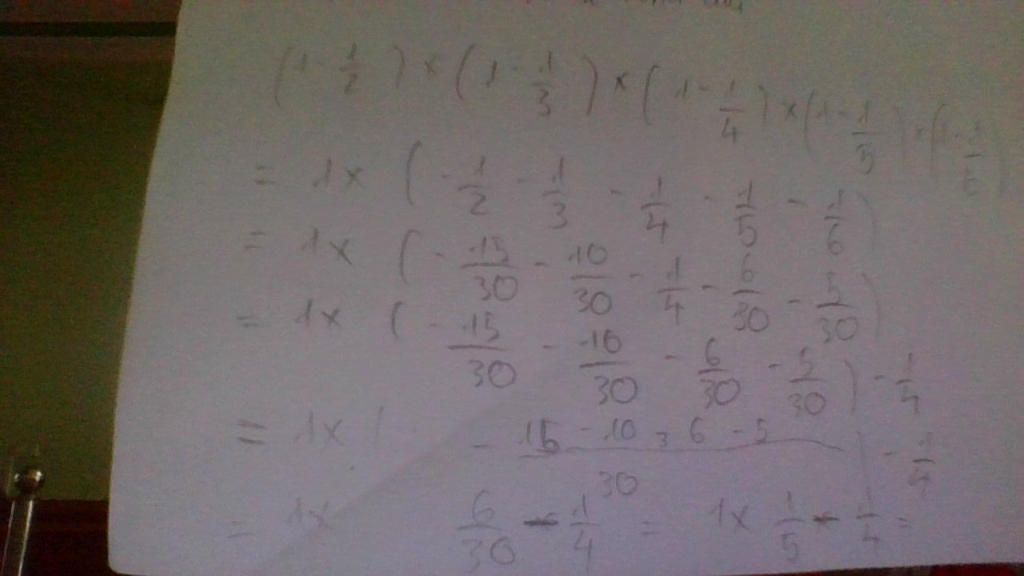 (1 - 1/2) × (1 - 1/3) × (1 - 1/4) × (1 - 1/5) × (1 - 1/6)
= 1 × (- 1/2 - 1/3 - 1/4 - 1/5 - 1/6)
= 1 × (- 15/30 - 10/30 - 1/4 - 6/30 - 5/30)
= 1 × (- 15/30 - 10/30 - 6/30 - 5/30) - 1/4
= 1 × ( - 15 - 10 - 6 - 5 / 30 ) - 1/4
= 1 × 6/30 - 1/4 = 1 × 1/5 - 1/4 =